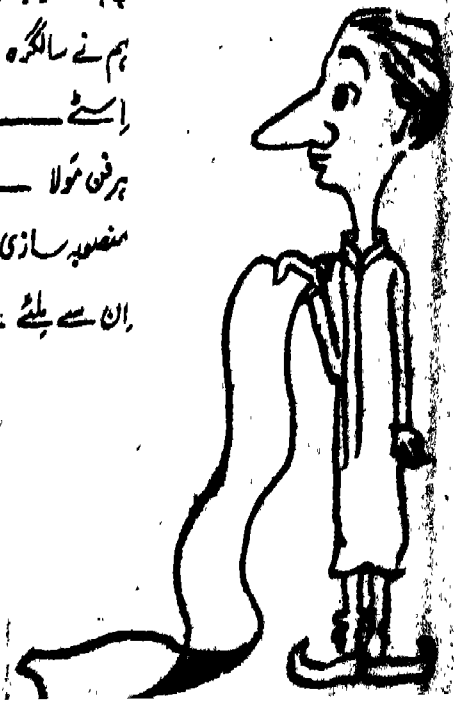 ہم نے سالگرہ
ہرفن مَولا
منصوبہ سازی
اِن سے مِلئے